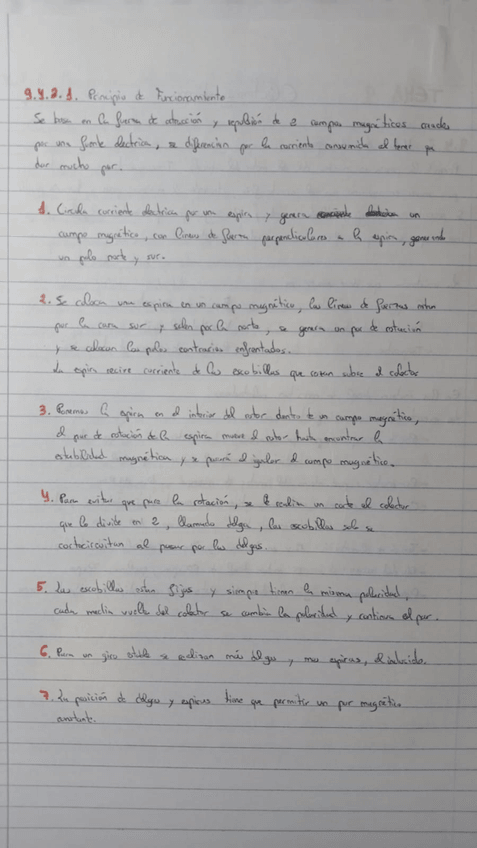 9.4.2.1. Principio de Funcionamiento
Se basa en la fuerza de atracción y repulsión de 2 campos magnéticos creados
por una fuente electrica, se diferencian por la corriente consumida al tener que
dar mucho par.
1. Circula corriente electrica por una espira y genera un
campo magnético, con lineas de fuerza perpendiculares a la espira, generando
un polo norte y sur.
2. Se coloca una espira en un campo magnético, las lineas de fuerzas entran
por la cara sur y salen por la norte, se genera un par de rotación
y se colocan los polos contrarios enfrentados.
La espira recive corriente de las escobillas que rozan sobre el colector
3. Ponemos la espira en el interior del rotor dentro de un campo magnético,
el par de rotación de la espira mueve el rotor hasta encontrar la
estabilidad magnética y se parará al igualar el campo magnético.
4. Para evitar que pare la rotación, se le realiza un corte al colector
que lo divide en 2, llamado delga, las escobillas solo se
cortocircuitan al pasar por las delgas.
5. Las escobillas estan fijas y siempre tienen la misma polaridad,
cada media vuelta del colector se cambia la polaridad y continua el par.
6. Para un giro estable se realizan más delgas y mas espiras, el inducido.
7. La posición de delgas y espiras tiene que permitir un par magnético
constante.